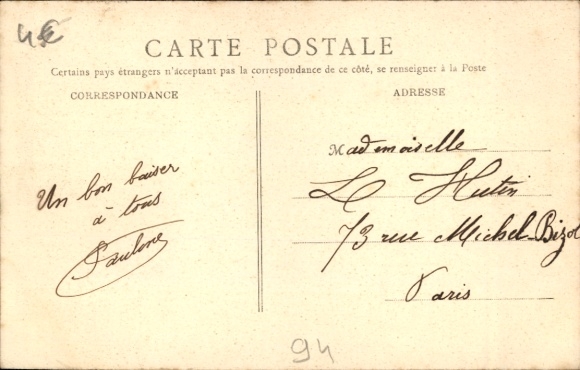 4€
CARTE POSTALE
Certains pays étrangers n'acceptant pas la correspondance de ce côté, se renseigner à la Poste
CORRESPONDANCE
ADRESSE
Un bon baiser
à tous
Paulone
Mademoiselle
L Hutin
73 rue Michel-Bizot
Paris
94